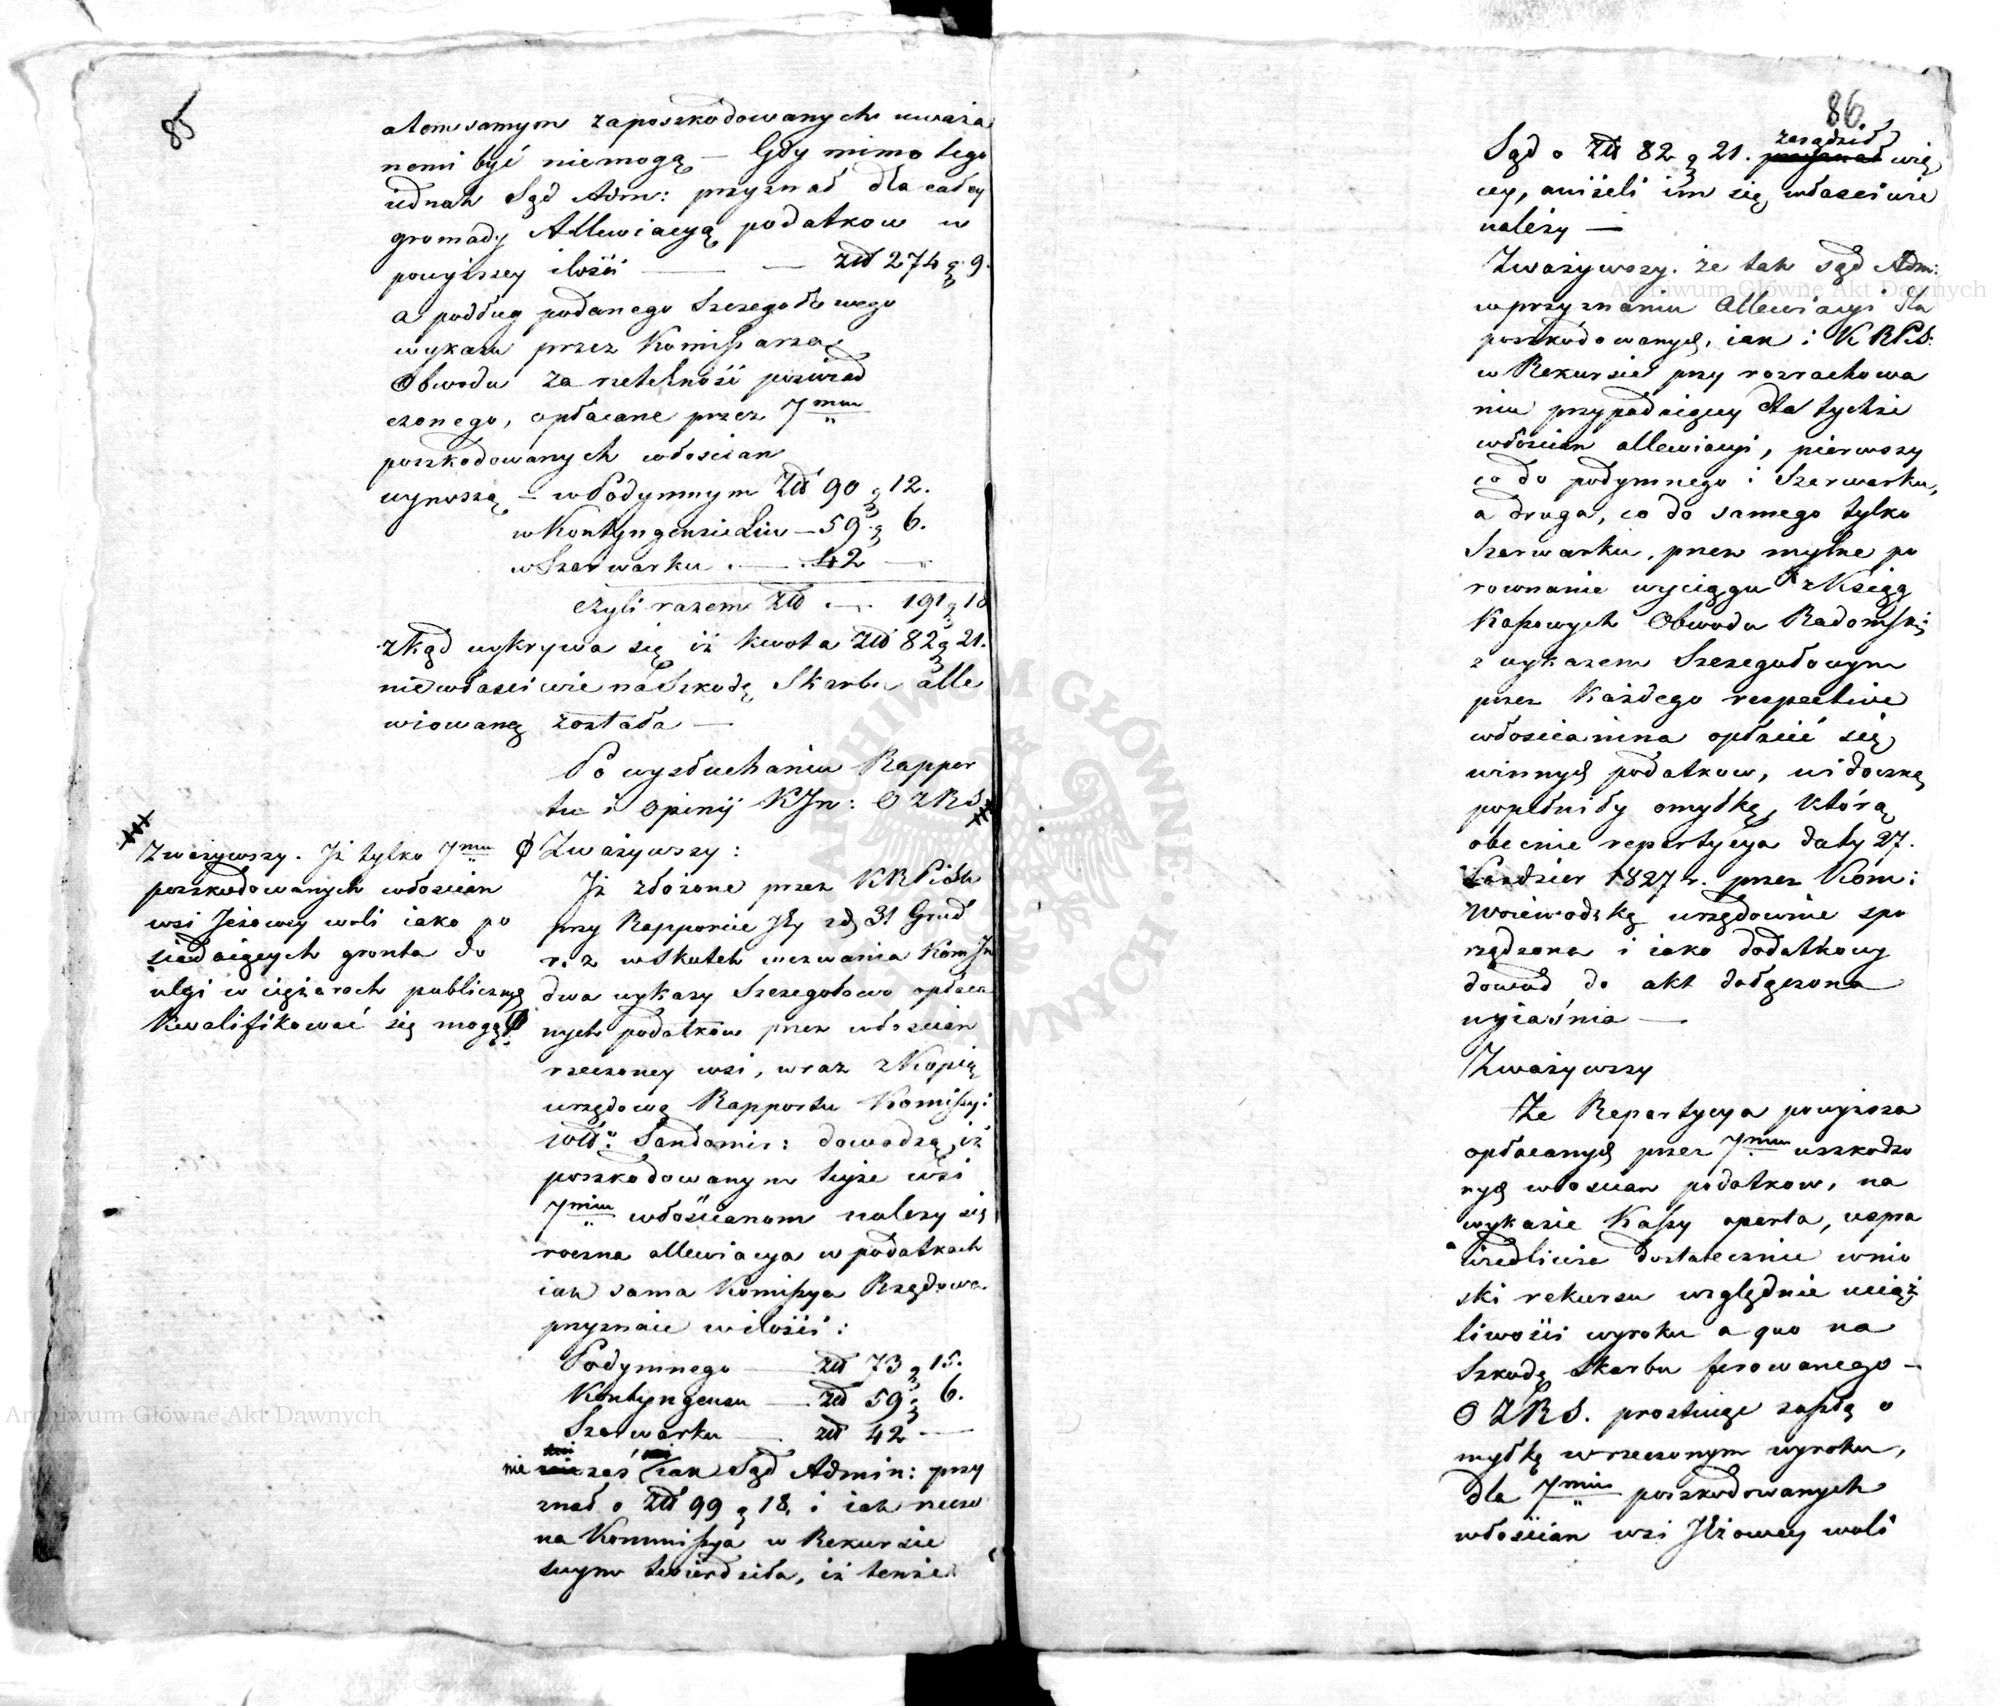 85
atem samym zaposzkodowanych uważa
nemi być niemogą — Gdy mimo tego
iednak Sąd Adm: przyznał dla całey
gromady Allewiacyą podatkow w
powyższey ilości — — Złł 274 g 9.
a podług podanego Szczegołowego
wykazu przez Kommissarza
Obwodu za rzetelność poświad
czonego, opłacane przez 7miu
poszkodowanych włoscian
wynoszą – w Podymnym Złł 90 g 12.
w Kontyngensie Liw — 59 g 6.
w Szarwarku — 42 —
czyli razem Złł — 191 g 18
zkąd wykrywa się iż kwota Złł 82 g 21.
niewłaściwie na Szkodę Skarbu alle
wiowaną została —
Po wysłuchaniu Rappor
tu i Opinij KJn: O Z R S
Zważywszy:
Zważywszy. Iż tylko 7miu
poszkodowanych włoscian
wsi Jeżowey woli iako po
siadaiących gronta do
ulgi w ciężarach publicznych
Kwalifikować się mogą
Iż złożone przez KRPiSk
przy Rapporcie Jey z d 31 Grud
r. z w skutek wezwania Kom Jn
dwa wykazy Szczegołowe opłaca
nych podatków przez włoscian
rzeczoney wsi, wraz z Kopią
urzędową Rapportu Kommissyi
Wdt: Sandomir: dowodzą, iż
poszkodowanym teyże wsi
7miu włościanom należy się
roczna allewiacya w podatkach
iak sama Kommissya Rządowa
przyznaie w ilości:
Podymnego — Złł 73 g 15.
Kontyngensu — Złł 59 g 6.
Szarwarku — złł 42 —
nie zaś iak Sąd Admin: przy
znał o Złł 99 g 18, i iak rzeczo
na Kommissya w Rekursie
swym twierdziła, iż tenże
86.
zasądził
Sąd o Złł 82 g 21. przyznał wię
cey, aniżeli im się właściwie
należy —
Zważywszy. że tak Sąd Adm:
w przyznaniu Allewiacyi dla
poszkodowanych, iak i KRPiS:
w Rekursie przy rozrachowa
niu przypadaiącey dla tychże
włościan allewiacyi, pierwszy
co do podymnego i Szarwarku,
a druga, co do samego tylko
Szarwarku, przez mylne po
rownanie wyciągu z Ksiąg
Kassowych Obwodu Radomski:
z wykazem Szczegułowym
przez Każdego respective
włoscianina opłacić się
winnych podatkow, widoczną
popełniły omyłkę, którą
obecnie repartycya daty 27.
Paździer 1827 r. przez Kom:
Woiewodzką urzędownie spo
rządzona i iako dodatkowy
dowód do akt dołączona
wyiaśnia —
Zważywszy
Że Repartycya powyższa
opłacanych przez 7miu uszkodzo
nych włoscian podatkow, na
wykazie Kassy oparta, uspra
wiedliwia dostatecznie wnio
ski rekursu względnie uciąż
liwości wyroku a quo na
Szkodę Skarbu ferowanego —
O Z R S. prostuiąc zaszłą o
myłkę w rzeczonym wyroku,
dla 7miu poszkodowanych
włościan wsi Jeżowey woli
Archiwum Główne Akt Dawnych
Archiwum Główne Akt Dawnych
ARCHIWUM GŁÓWNE AKT DAWNYCH